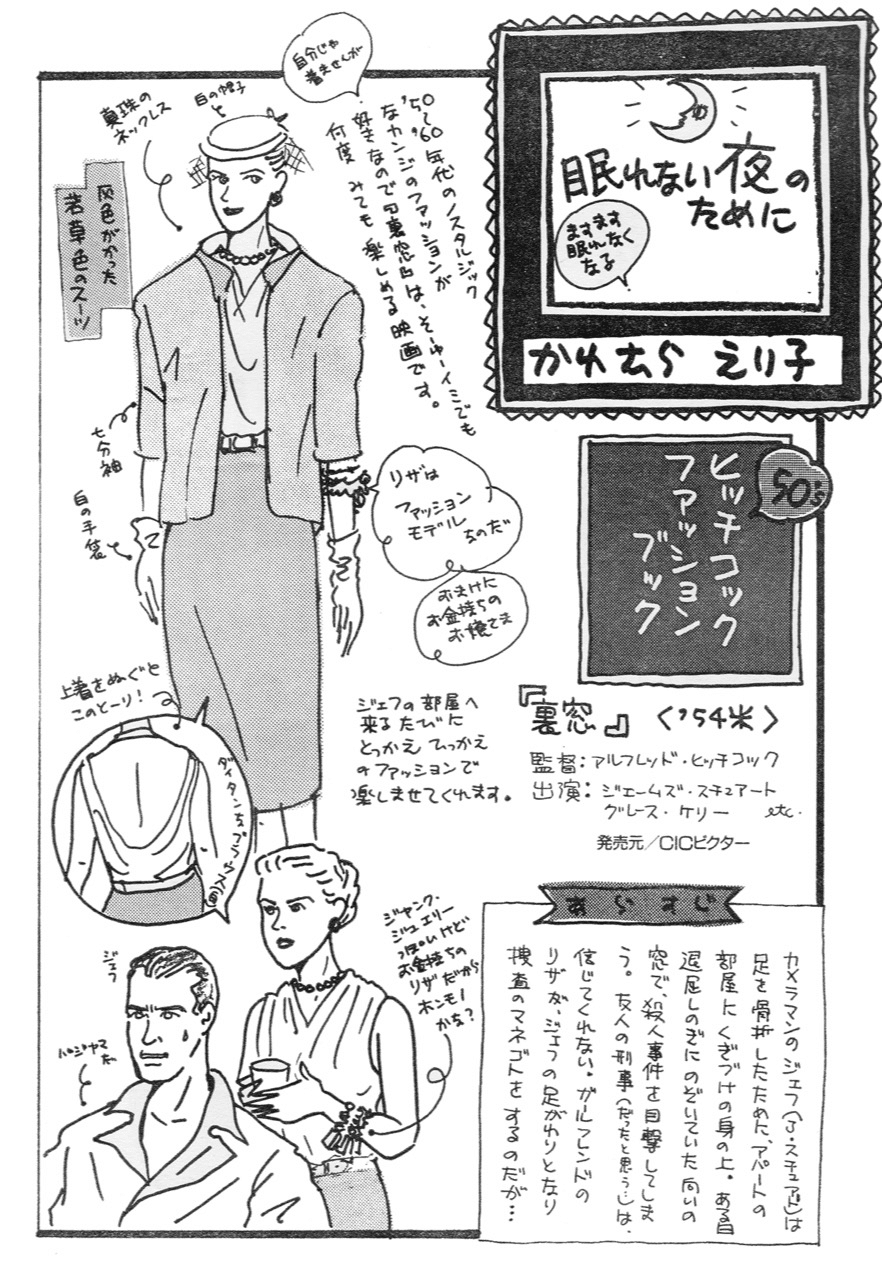 眠れない夜の
ために
ますます
眠れなく
なる
かわむら えり子
50's
ヒッチコック
ファッション
ブック
『裏窓』〈'54米〉
監督：アルフレッド・ヒッチコック
出演：ジェームズ・スチュアート
グレース・ケリー etc.
発売元／CICビクター
自分じゃ
着ませんが
'50〜'60年代のノスタルジック
なカンジのファッションが
好きなので『裏窓』は、そーゆーイミでも
何度 みても 楽しめる映画です。
白の帽子
真珠の
ネックレス
灰色がかった
若草色のスーツ
七分袖
白の手袋
リザは
ファッション
モデル
なのだ
おまけに
お金持ちの
お嬢さま
上着をぬぐと
このとーり！
ダイタンなブラウス(白)
ジェフの部屋へ
来るたびに
とっかえ ひっかえ
のファッションで
楽しませてくれます。
ジャンク・
ジュエリー
っぽいけど
お金持ちの
リザだから
ホンモノ
かな？
ジェフ
パジャマだ
あらすじ
カメラマンのジェフ(J・スチュアート)は
足を骨折したために、アパートの
部屋にくぎづけの身の上。ある日
退屈しのぎにのぞいていた向いの
窓で、殺人事件を目撃してしま
う。友人の刑事(だったと思う)は、
信じてくれない。ガールフレンドの
リザが、ジェフの足がわりとなり
捜査のマネゴトをするのだが…